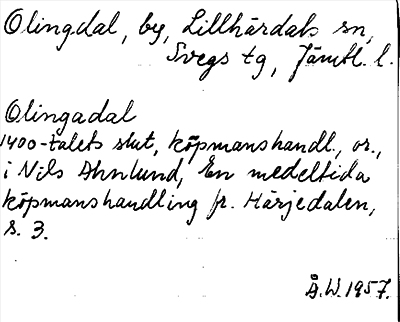 Olingdal, by, Lillhärdals sn,
Svegs tg, Jämtl. l.
Olingadal
1400-talets slut, köpmanshandl., or.,
i Nils Ahnlund, En medeltida
köpmanshandling fr. Härjedalen,
s. 3.
Å.W. 1957.